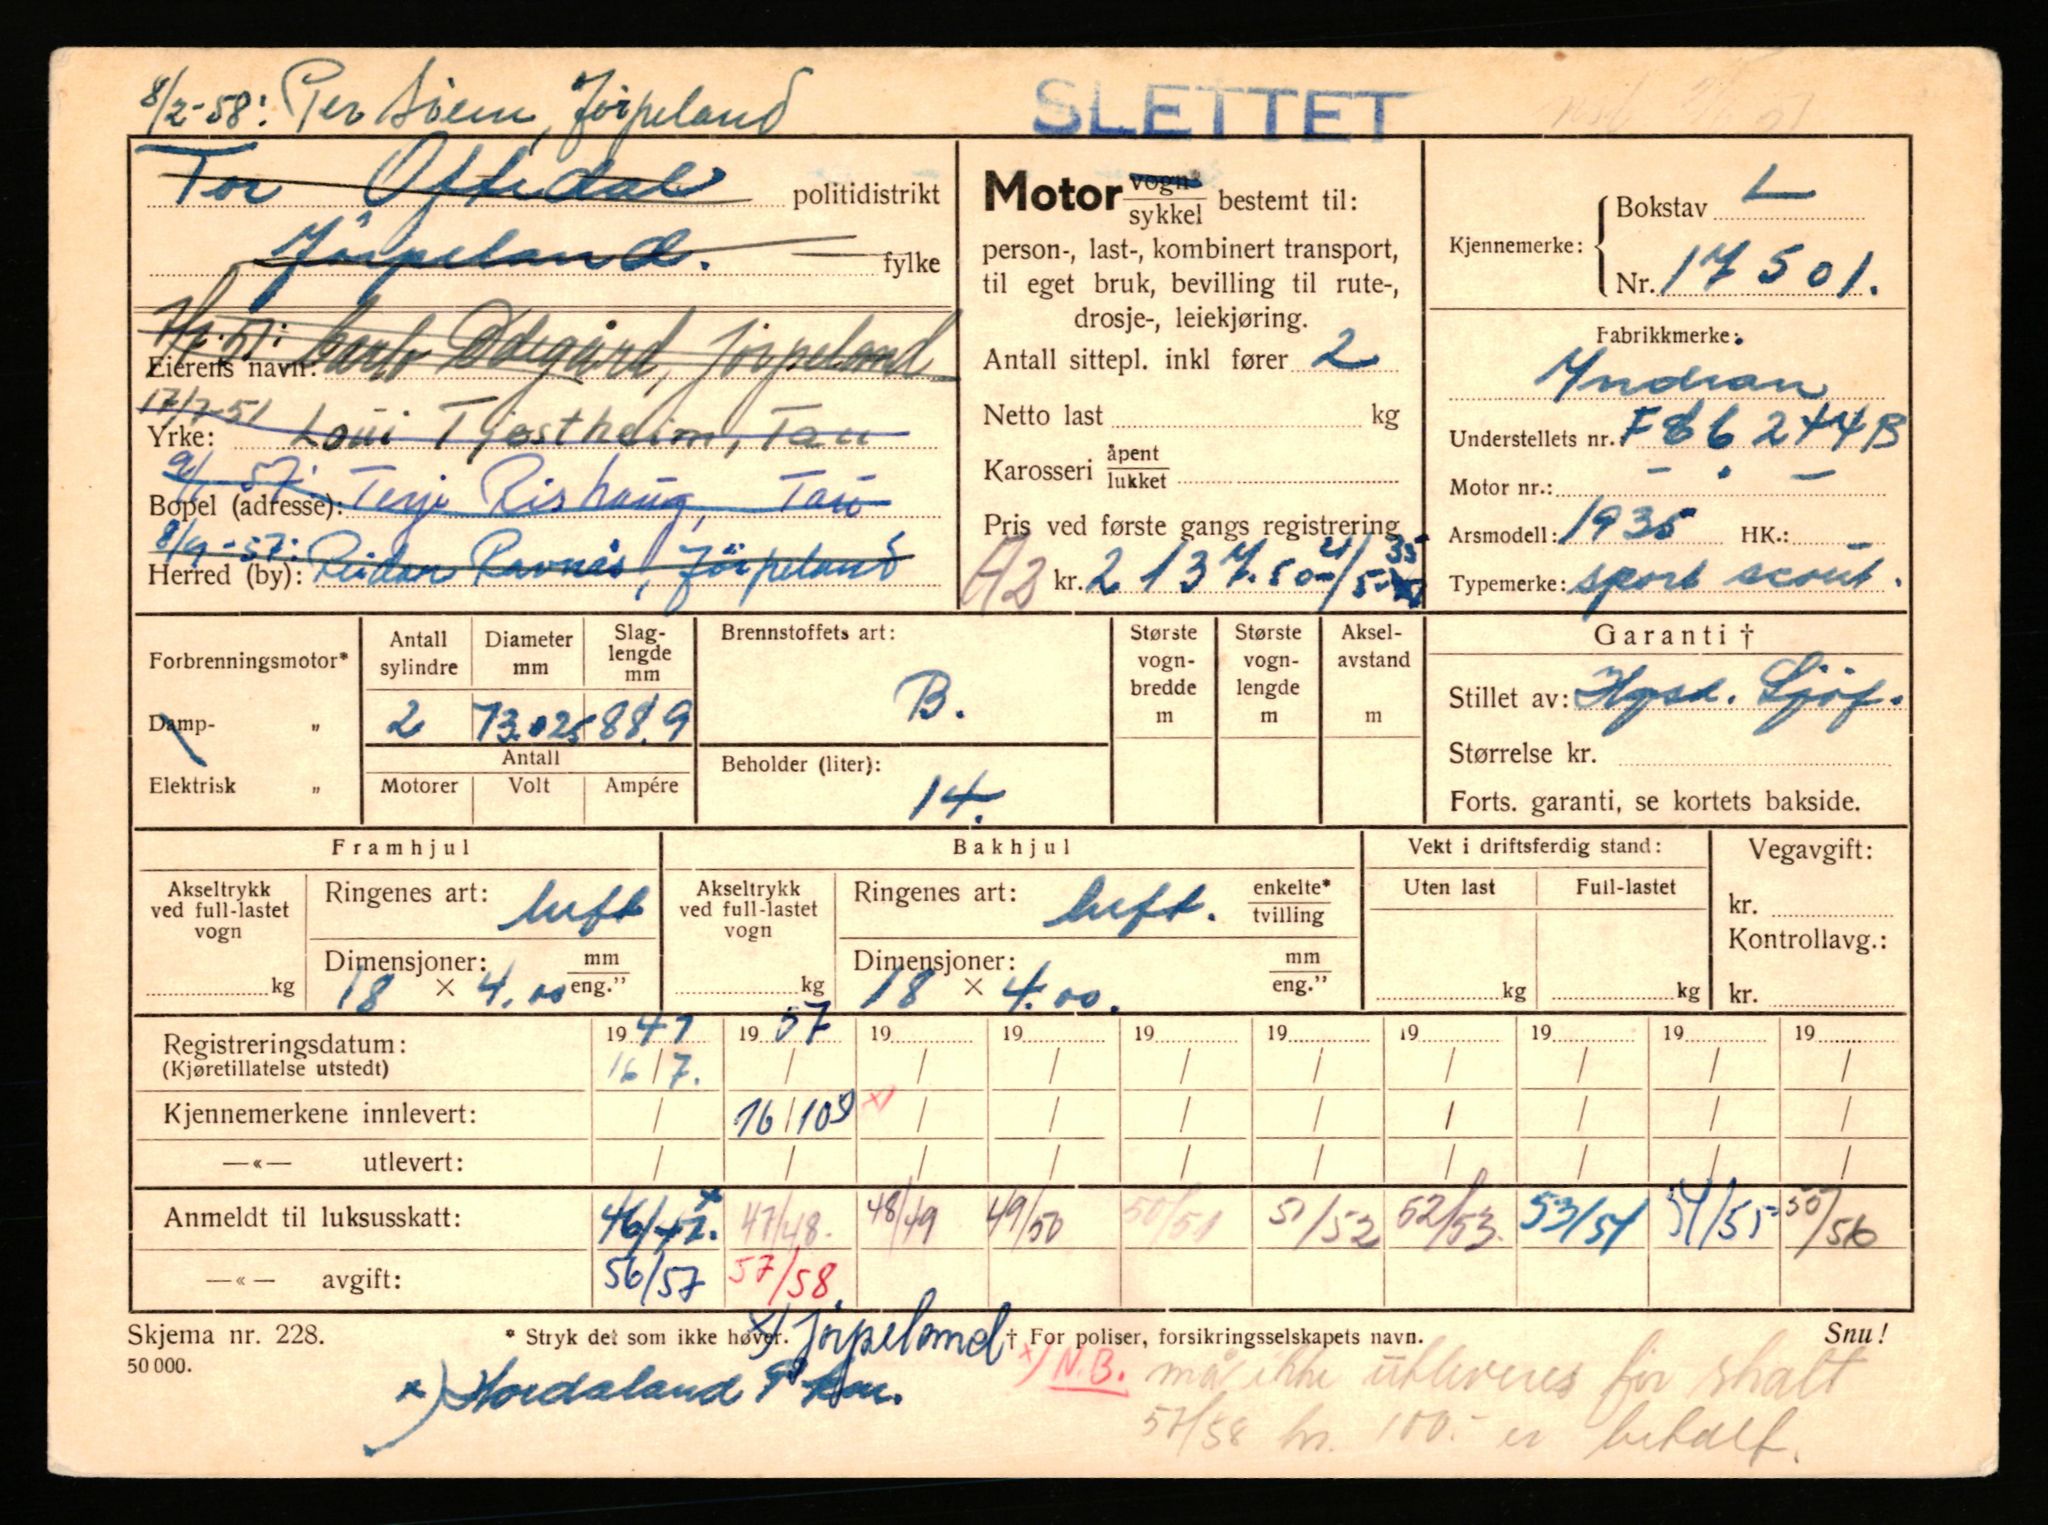 8/2-58: Per Soem, Jørpeland
SLETTET
Tor Oftedal politidistrikt
Jørpeland. fylke
Ødegård, Jørpeland
Eierens navn:
17/7-51 Loui Tjøstheim, Tau
Yrke:
9/1 57: Terje Rishaug, Tau
Bopel (adresse):
8/9-57: Reidar Ravnås, Jørpeland
Herred (by):
Motor vogn*/sykkel bestemt til:
person-, last-, kombinert transport,
til eget bruk, bevilling til rute-,
drosje-, leiekjøring.
Antall sittepl. inkl fører 2
Netto last kg
Karosseri åpent/lukket
Pris ved første gangs registrering
kr. 2 137.50
Kjennemerke: Bokstav L
Nr. 17501.
Fabrikkmerke:
Yndian
Understellets nr. F86244B
Motor nr.: - - -
Arsmodell: 1935 HK.: -
Typemerke: sport scout.
Forbrenningsmotor*
Damp- „
Elektrisk „
Antall sylindre
2
Diameter mm
73.025
Slag-lengde mm
88.9
Antall
Motorer Volt Ampére
Brennstoffets art:
B.
Beholder (liter):
14.
Største vogn-bredde m
Største vogn-lengde m
Aksel-avstand m
Garanti †
Stillet av: Hgsd. Sjöf.
Størrelse kr.
Forts. garanti, se kortets bakside.
Framhjul
Akseltrykk ved full-lastet vogn
kg
Ringenes art: luft
Dimensjoner: mm/eng."
18 × 4.00
Bakhjul
Akseltrykk ved full-lastet vogn
kg
Ringenes art: luft. enkelte*/tvilling
Dimensjoner: mm/eng."
18 × 4.00.
Vekt i driftsferdig stand:
Uten last Full-lastet
kg kg
Vegavgift:
kr.
Kontrollavg.:
kr.
Registreringsdatum: 1947 1957 19 19 19 19 19 19 19 19
(Kjøretillatelse utstedt) 16/7. / / / / / / / / /
Kjennemerkene innlevert: / 16/10 x) / / / / / / / /
—«— utlevert: / / / / / / / / / /
Anmeldt til luksusskatt: 46/47. x 47/48. 48/49 49/50 50/51 51/52 52/53. 53/54 54/55 55/56
—«— avgift: 56/57 57/58
Skjema nr. 228. * Stryk det som ikke høver. x) Jørpeland † For poliser, forsikringsselskapets navn. Snu!
50 000.
x) N.B. må ikke utleveres før skatt
x) Hordaland P. kam.
57/58 kr. 100.- er betalt.